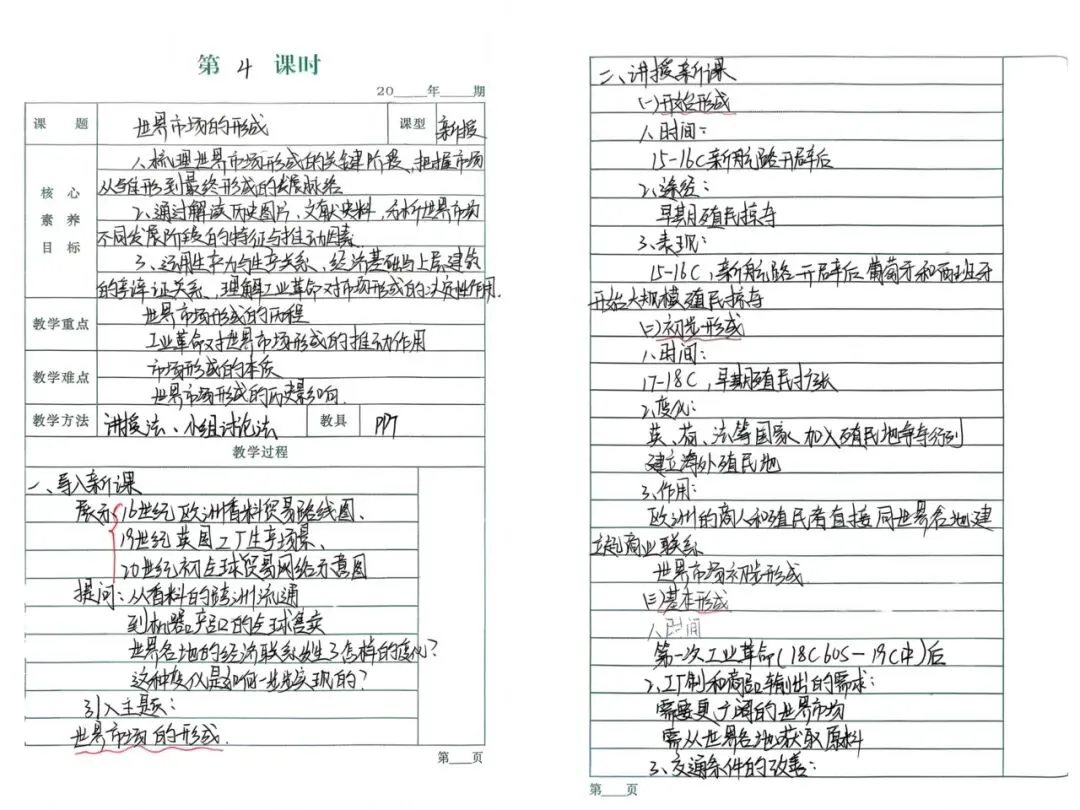 第 4 课时
20____年____期
课 题 世界市场的形成 课型 新授
核心素养目标
1、梳理世界市场形成的关键阶段，把握市场
从雏形到最终形成的发展脉络
2、通过解读历史图片、文献史料，分析世界市场
不同发展阶段的特征与推动因素
3、运用生产力与生产关系、经济基础与上层建筑
的辩证关系，理解工业革命对市场形成的决定性作用.
教学重点 世界市场形成的历程
工业革命对世界市场形成的推动作用
教学难点 市场形成的本质
世界市场形成的历史影响.
教学方法 讲授法、小组讨论法 教具 PPT
教学过程
一、导入新课
展示 16世纪欧洲香料贸易路线图、
19世纪英国工厂生产场景、
20世纪初全球贸易网络示意图
提问：从香料的跨洲流通
到机器产品的全球售卖
世界各地的经济联系发生了怎样的变化？
这种变化是如何一步步实现的？
引入主题：
世界市场的形成.
第____页
二、讲授新课
(一)开始形成
1、时间：
15-16C新航路开辟后
2、途经：
早期殖民掠夺
3、表现：
15-16C，新航路开辟后葡萄牙和西班牙
开始大规模殖民掠夺
(二)初步形成
1、时间：
17-18C，早期殖民扩张
2、变化：
英、荷、法等国家加入殖民地争夺行列
建立海外殖民地
3、作用：
欧洲的商人和殖民者直接同世界各地建
立起商业联系
世界市场初步形成
(三)基本形成
1、时间
第一次工业革命(18C60S-19C中)后
2、工厂制和商品输出的需求：
需要更广阔的世界市场
需从世界各地获取原料
3、交通条件的改善：
第____页